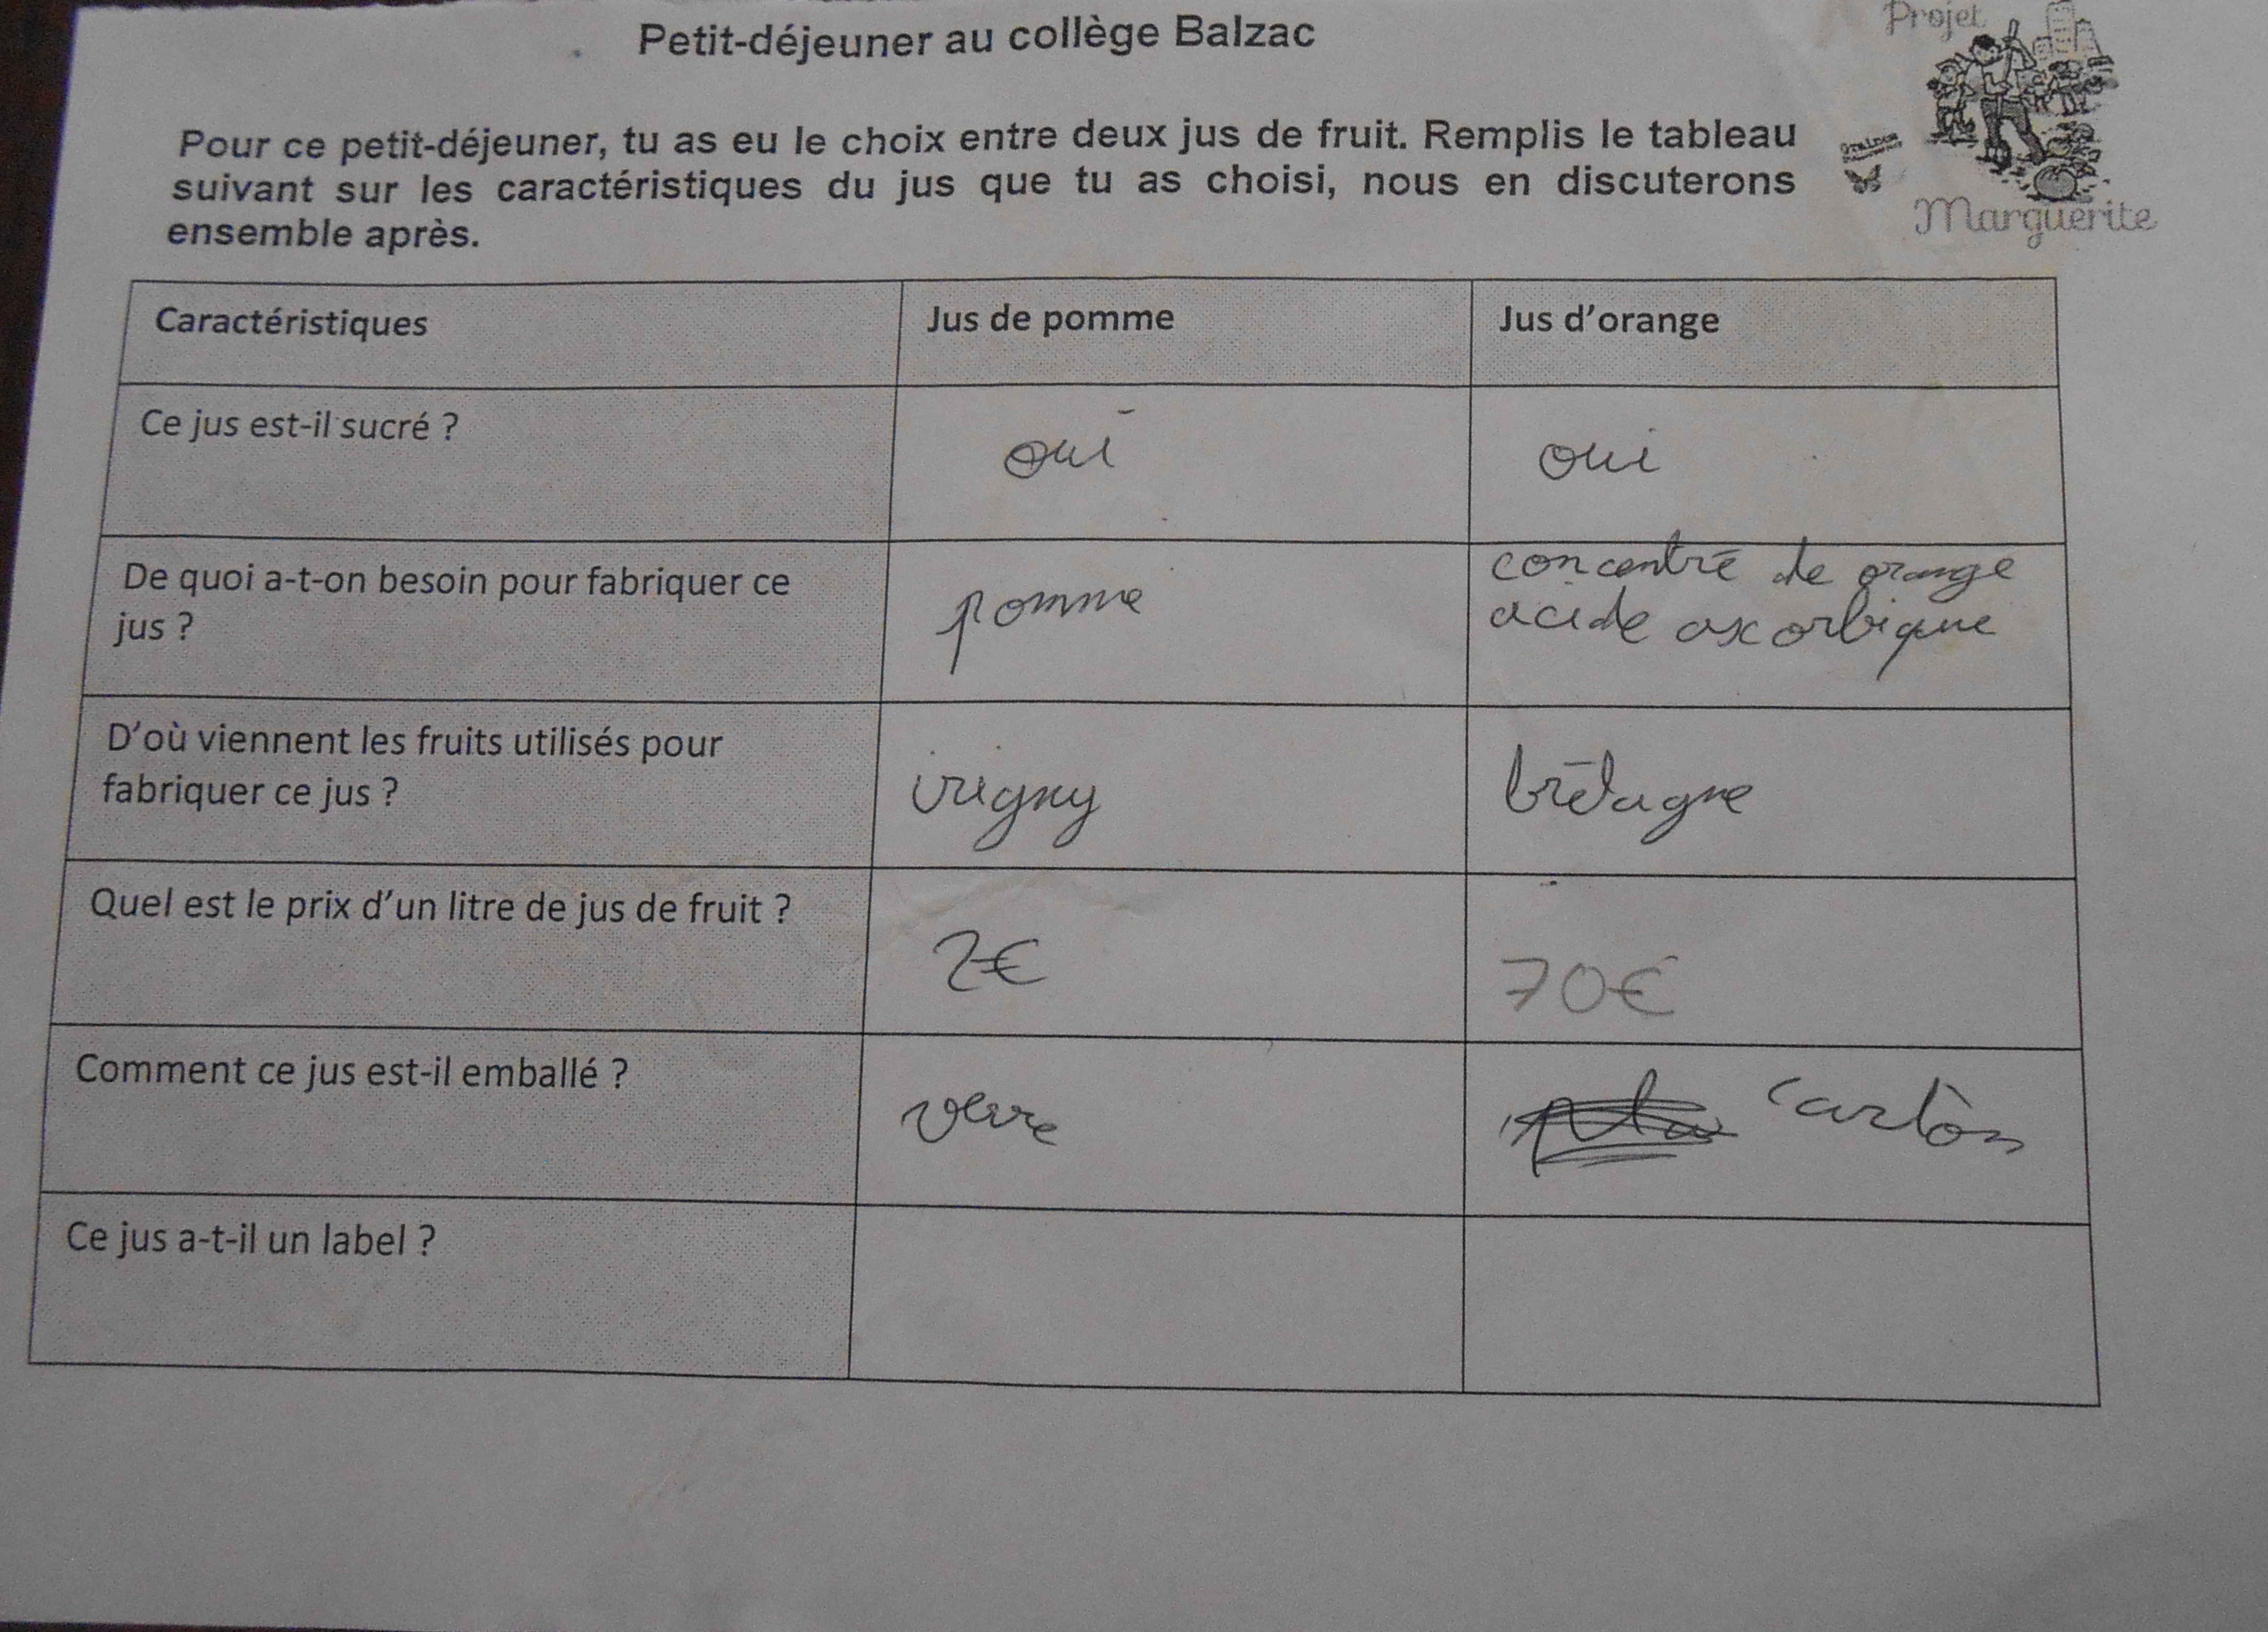 Petit-déjeuner au collège Balzac
Projet
Marguerite
Pour ce petit-déjeuner, tu as eu le choix entre deux jus de fruit. Remplis le tableau
suivant sur les caractéristiques du jus que tu as choisi, nous en discuterons
ensemble après.
Caractéristiques Jus de pomme Jus d'orange
Ce jus est-il sucré ? oui oui
De quoi a-t-on besoin pour fabriquer ce
jus ?
pomme
concentré de orange
acide ascorbique
D'où viennent les fruits utilisés pour
fabriquer ce jus ?
irigny
brétagne
Quel est le prix d'un litre de jus de fruit ?
2€
70€
Comment ce jus est-il emballé ?
verre
carton
Ce jus a-t-il un label ?